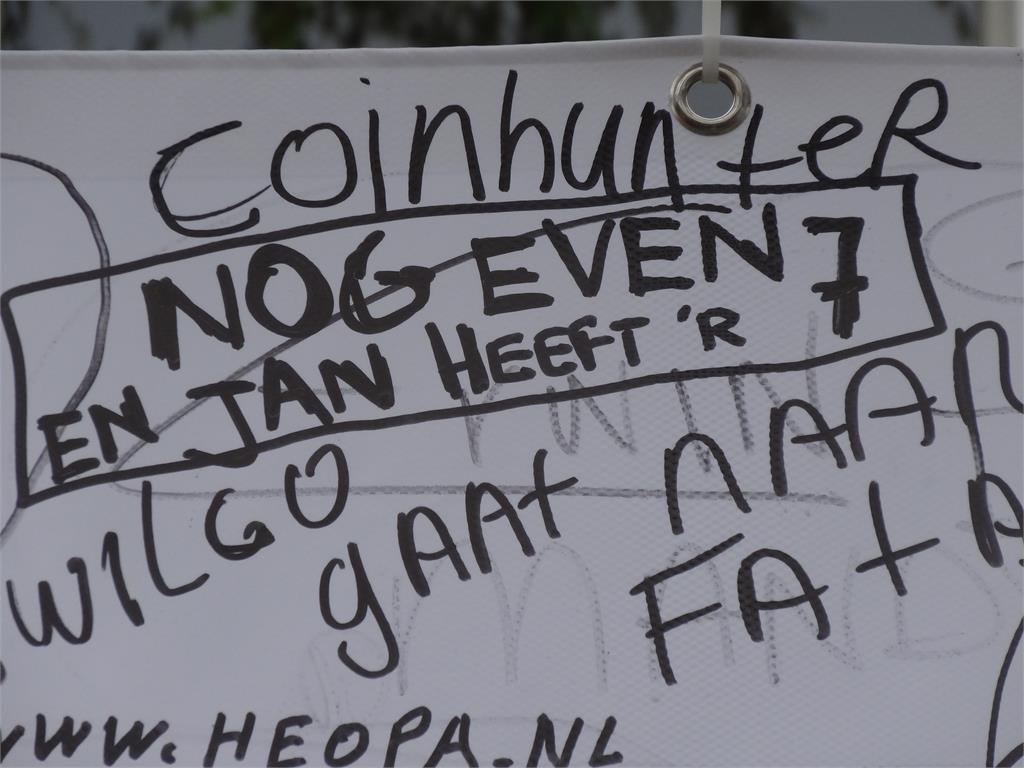 CoinhunteR
NOG EVEN 7
EN JAN HEEFT 'R
WILGO
gAAt nAAR
FAtA
www.HEOPA.NL